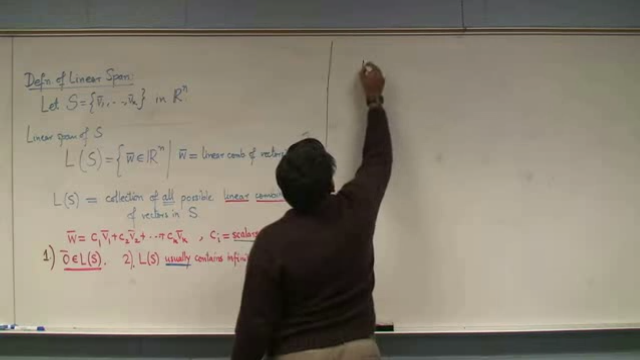 Defn of Linear Span:
Let S = {v̄₁, ..., v̄ₖ} in Rⁿ
Linear span of S
L(S) = { w̄ ∈ Rⁿ | w̄ = linear comb of vectors
L(S) = collection of all possible linear
of vectors in S
w̄ = c₁v̄₁ + c₂v̄₂ + ... + cₖv̄ₖ , cᵢ = scalars
1.) 0̄ ∈ L(S). 2). L(S) usually contains